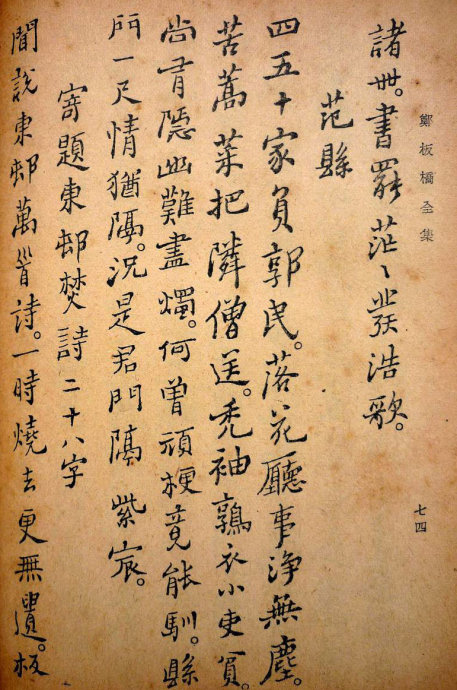 鄭板橋全集
七四
諸世。書罷茫〻發浩歌。
范縣
四五十家負郭民。落花廳事淨無塵。
苦蒿菜把隣僧送。禿袖鶉衣小吏貧。
尚有隱幽難盡燭。何曾頑梗竟能馴。縣
門一尺情猶隔。況是君門隔紫宸。
寄題東邨焚詩二十八字
聞說東邨萬首詩。一時燒去更無遺。板